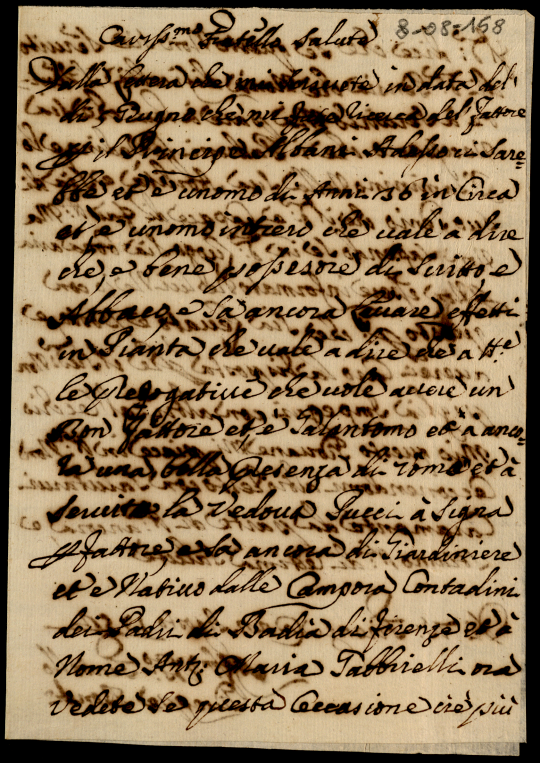 8-08-168
Cariss.mo Fratello Salute
Dalla lettera che mi in data del
di Giugno che mi fate ricerca del fattore
p il Principe Albani Adesso ci Sare=
bbe et è un omo di Anni 30 in Circa
et è un omo intiero che vale a dire
che e bene possesore di Scritto e
Abbaco e Sà ancora levare effetti
in Pianta che vale a dire che a tt.e
le Prerogative che vole avere un
Bon Fattore et è Galantomo et à anco=
ra una bella Presenza di omo et à
servito la Vedova Pucci à Signa
p fattore e Sà ancora di Giardiniere
et è Nativo dalle Campora Contadini
dei Padri di Badia di firenze et à
Nome Ant: Maria Gabbrielli ora
Vedete Se questa Occasione c'è più